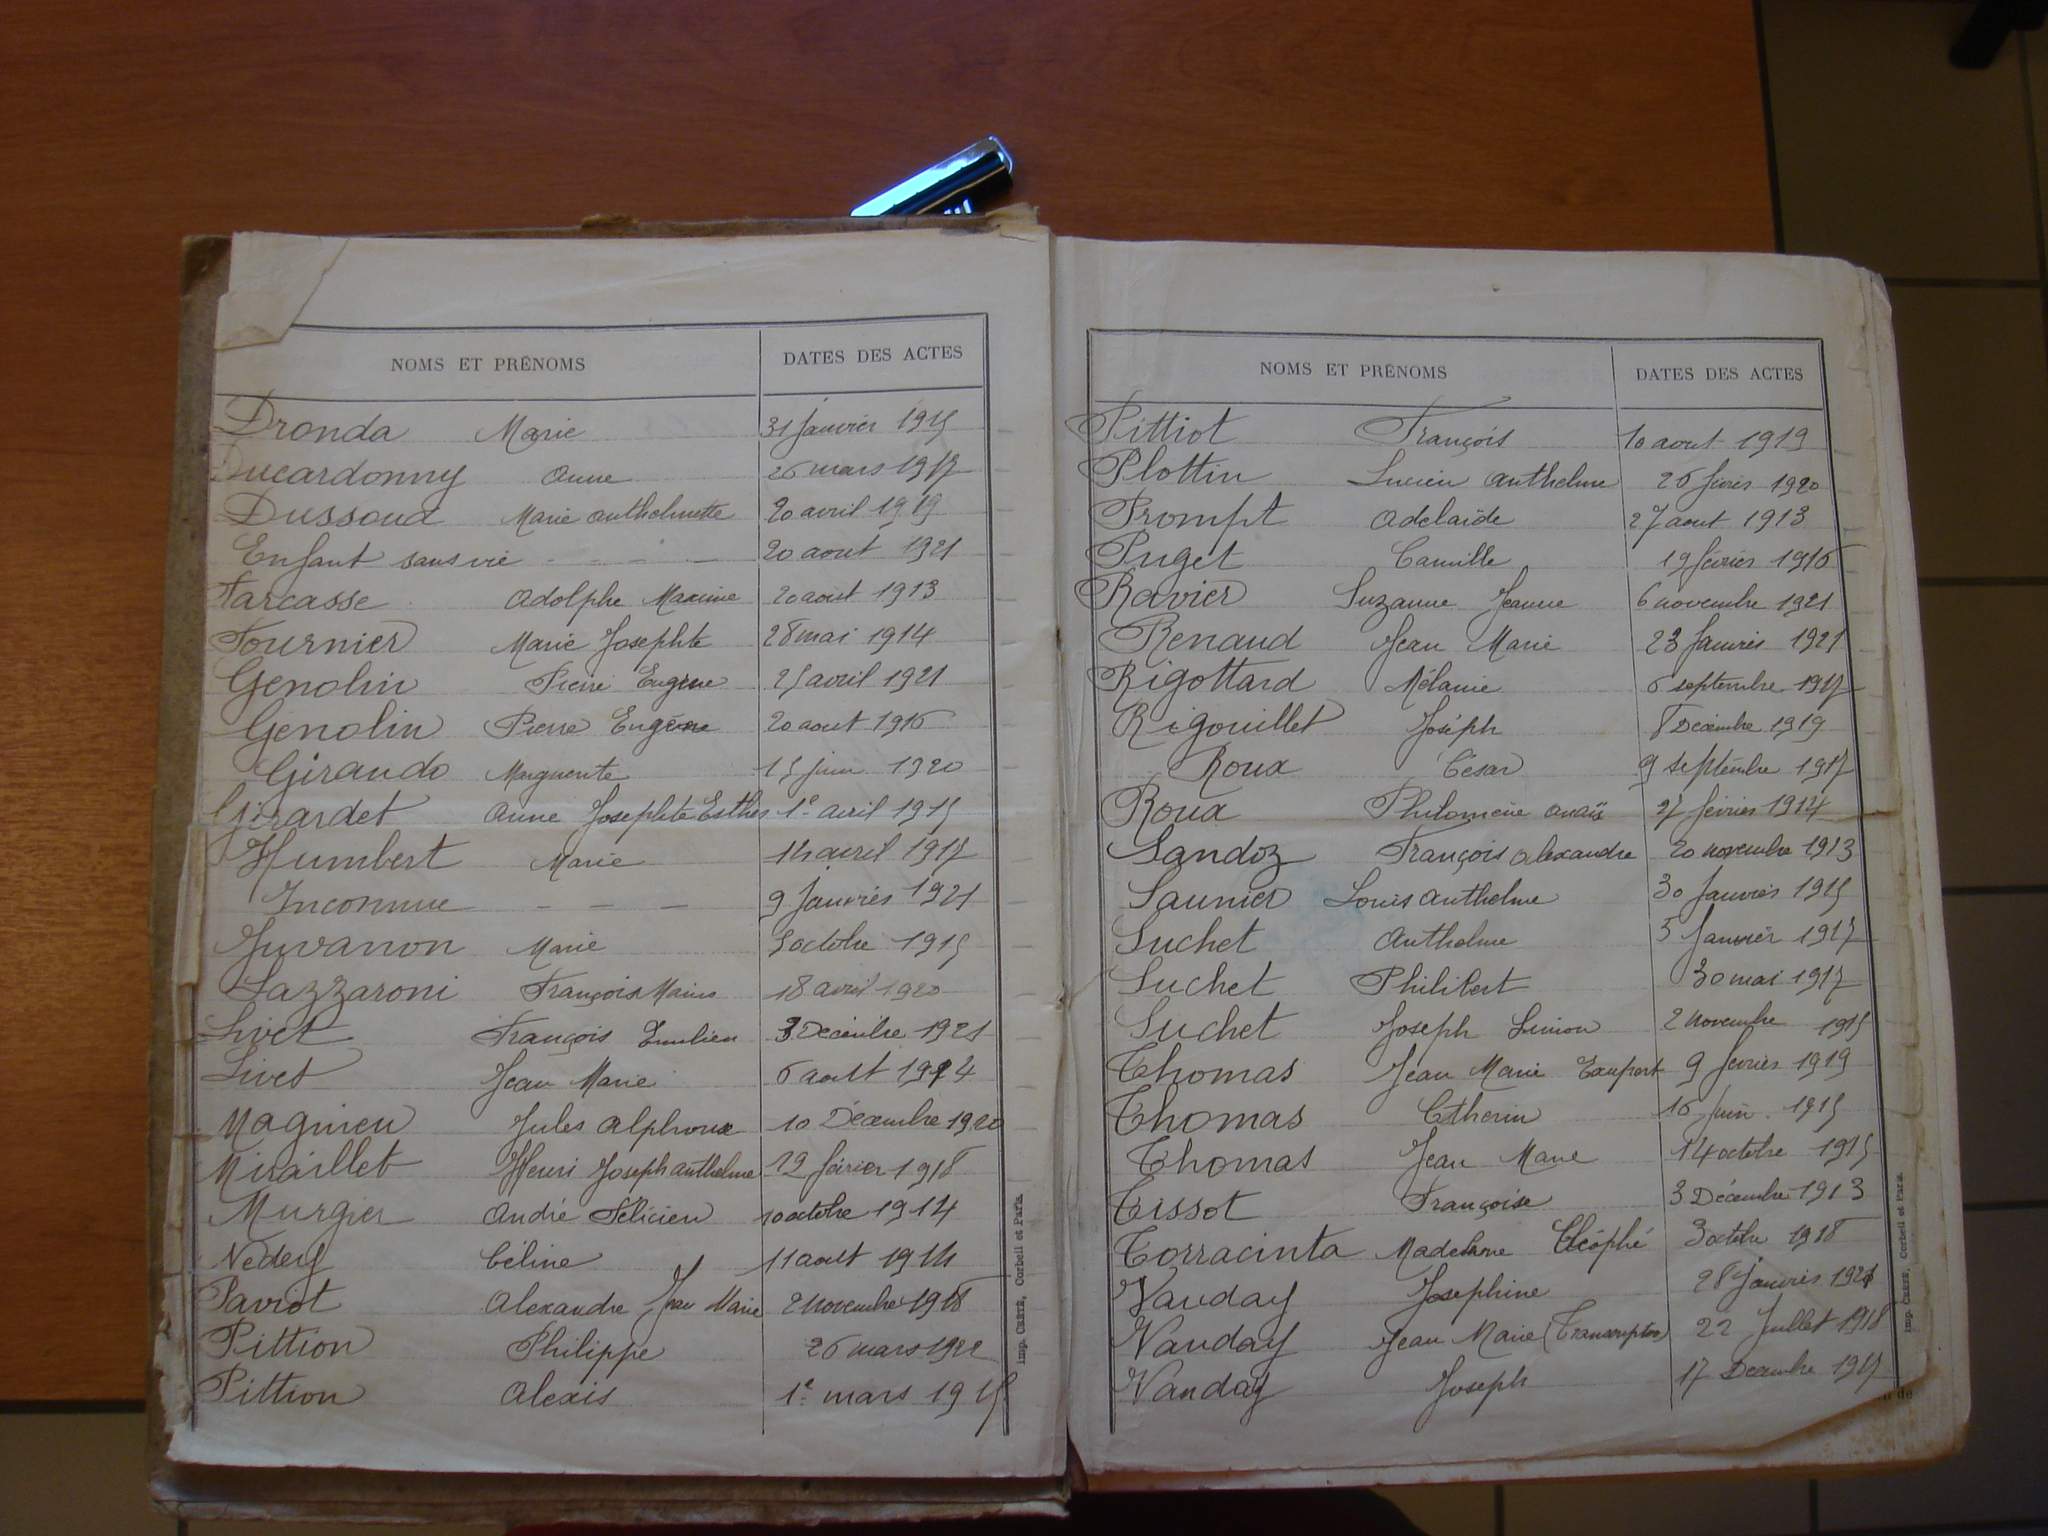 NOMS ET PRÉNOMS DATES DES ACTES
Dronda Marie 31 janvier 1915
Ducardonny Anne 26 mars 1917
Dussoud Marie Anthelmette 20 avril 1919
Enfant sans vie - - - - 20 aout 1921
Farcasse Adolphe Maxime 20 aout 1913
Fournier Marie Josephte 28 mai 1914
Genolin Pierre Eugène 25 avril 1921
Genolin Pierre Eugène 20 aout 1916
Giraudo Marguerite 15 juin 1920
Girardet Anne Josephte Esther 1e avril 1915
Humbert Marie 14 avril 1917
Inconnue - - - 9 janvier 1921
Juvanon Marie 3 octobre 1915
Lazzaroni François 18 avril 1920
Livet François Emilien 3 Décembre 1921
Livet Jean Marie 6 aout 1914
Magnieu Jules Alphonse 10 Décembre 1920
Miraillet Henri Joseph Anthelme 12 février 1918
Murgier André Félicien 10 octobre 1914
Nedey Céline 11 aout 1914
Paviot Alexandre Jean Marie 2 novembre 1918
Pittion Philippe 26 mars 1922
Pittion Alexis 1e mars 1915
Imp. Carré, Corbeil et Paris.
NOMS ET PRÉNOMS DATES DES ACTES
Pittiot François 10 aout 1919
Plottin Lucien Anthelme 26 février 1920
Prompt Adelaïde 27 aout 1913
Puget Camille 19 février 1916
Ravier Suzanne Jeanne 6 novembre 1921
Renaud Jean Marie 23 Janvier 1921
Rigottard Mélanie 6 septembre 1917
Rigouillet Joséph 8 Décembre 1919
Roux César 9 septembre 1917
Roux Philomène Anaïs 27 février 1914
Sandoz François Alexandre 20 novembre 1913
Saunier Louis Anthelme 30 Janvier 1915
Suchet Anthelme 5 Janvier 1917
Suchet Philibert 30 mai 1917
Suchet Joseph 2 novembre 1915
Thomas Jean Marie 9 fevrier 1919
Thomas 16 Juin 1915
Thomas Jean Marie 14 octobre 1915
Tissot Françoise 3 Décembre 1913
Torracinta Madelaine Cléophé 3 octobre 1918
Vauday Josephine 28 Janvier 1921
Vauday Jean Marie (Transcription) 22 Juillet 1918
Vauday Joseph 17 Decembre 1917
Imp. Carré, Corbeil et Paris.